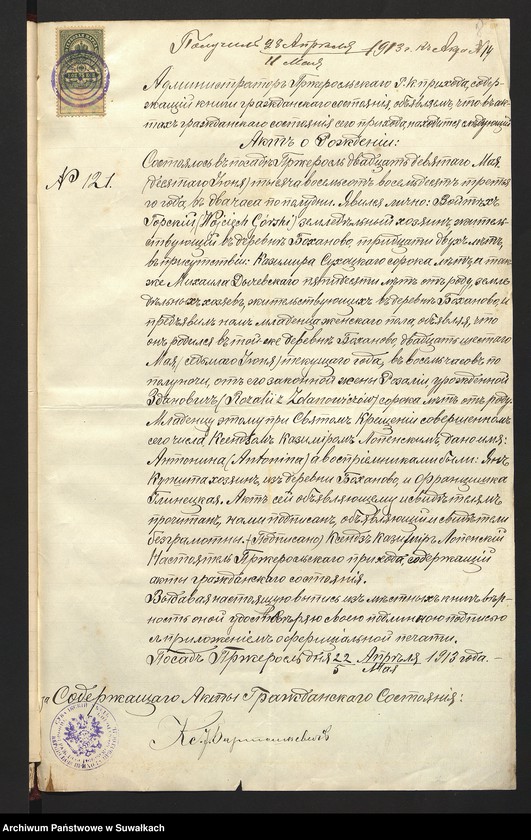 Получилъ 28 Апрѣля / 11 Мая 1913 г. къ Акту № 14
Администраторъ Пржеросльскаго Р. К. прихода, содер-
жащій книги гражданскаго состоянія, объявляетъ, что въ ак-
тахъ гражданскаго состоянія сего прихода, находится слѣдующій
Актъ о Рожденіи:
№ 121.
Состоялось въ посадѣ Пржеросль двадцать девятаго Мая
(десятаго Іюня) тысяча восемьсотъ восемьдесятъ третья-
го года, въ два часа по полудни. Явился лично: Войтѣхъ
Горскій (Wojciech Górski) земледѣльный хозяинъ, житель-
ствующій въ деревнѣ Боханово, тридцати двухъ лѣтъ,
въ присутствіи: Казимира Сухоцкаго сорока лѣтъ, а так-
же Михаила пятидесяти лѣтъ отъ роду, земле-
дѣльныхъ хозяевъ, жительствующихъ въ деревнѣ Боханово, и
предъявилъ намъ младенца женскаго пола, объявляя, что
онъ родился въ той же деревнѣ Боханово, двадцать шестаго
Мая (седьмаго Іюня) текущаго года, въ восемь часовъ по
полуночи, отъ его законной жены Розаліи урожденной
Здановичъ (Rozalii z Zdanowiczów) сорока лѣтъ отъ роду.
Младенцу этому при Святомъ Крещеніи совершенномъ
сего числа Ксендзомъ Казиміромъ Лопенскимъ дано имя:
Антонина (Antonina) а воспріемниками были: Янъ
хозяинъ, изъ деревни Боханово, и Францишка
Глинецкая. Актъ сей объявляющему и свидѣтелямъ
прочитанъ, нами подписанъ, объявляющій и свидѣтели
безграмотны. (Подписано) Ксендзъ Казиміръ Лопенскій
Настоятель Пржеросльскаго прихода, содержащій
акты гражданскаго состоянія.
Выдавая настоящую выпись изъ мѣстныхъ книгъ, вѣр-
ность оной удостовѣряю своею подлинною подписью
съ приложеніемъ оффиціальной печати.
Посадъ Пржеросль дня 22 Апрѣля / 5 Мая 1913 года.
за Содержащаго Акты Гражданскаго Состоянія:
Кс. І. Бартошкевичъ
Archiwum Państwowe w Suwałkach